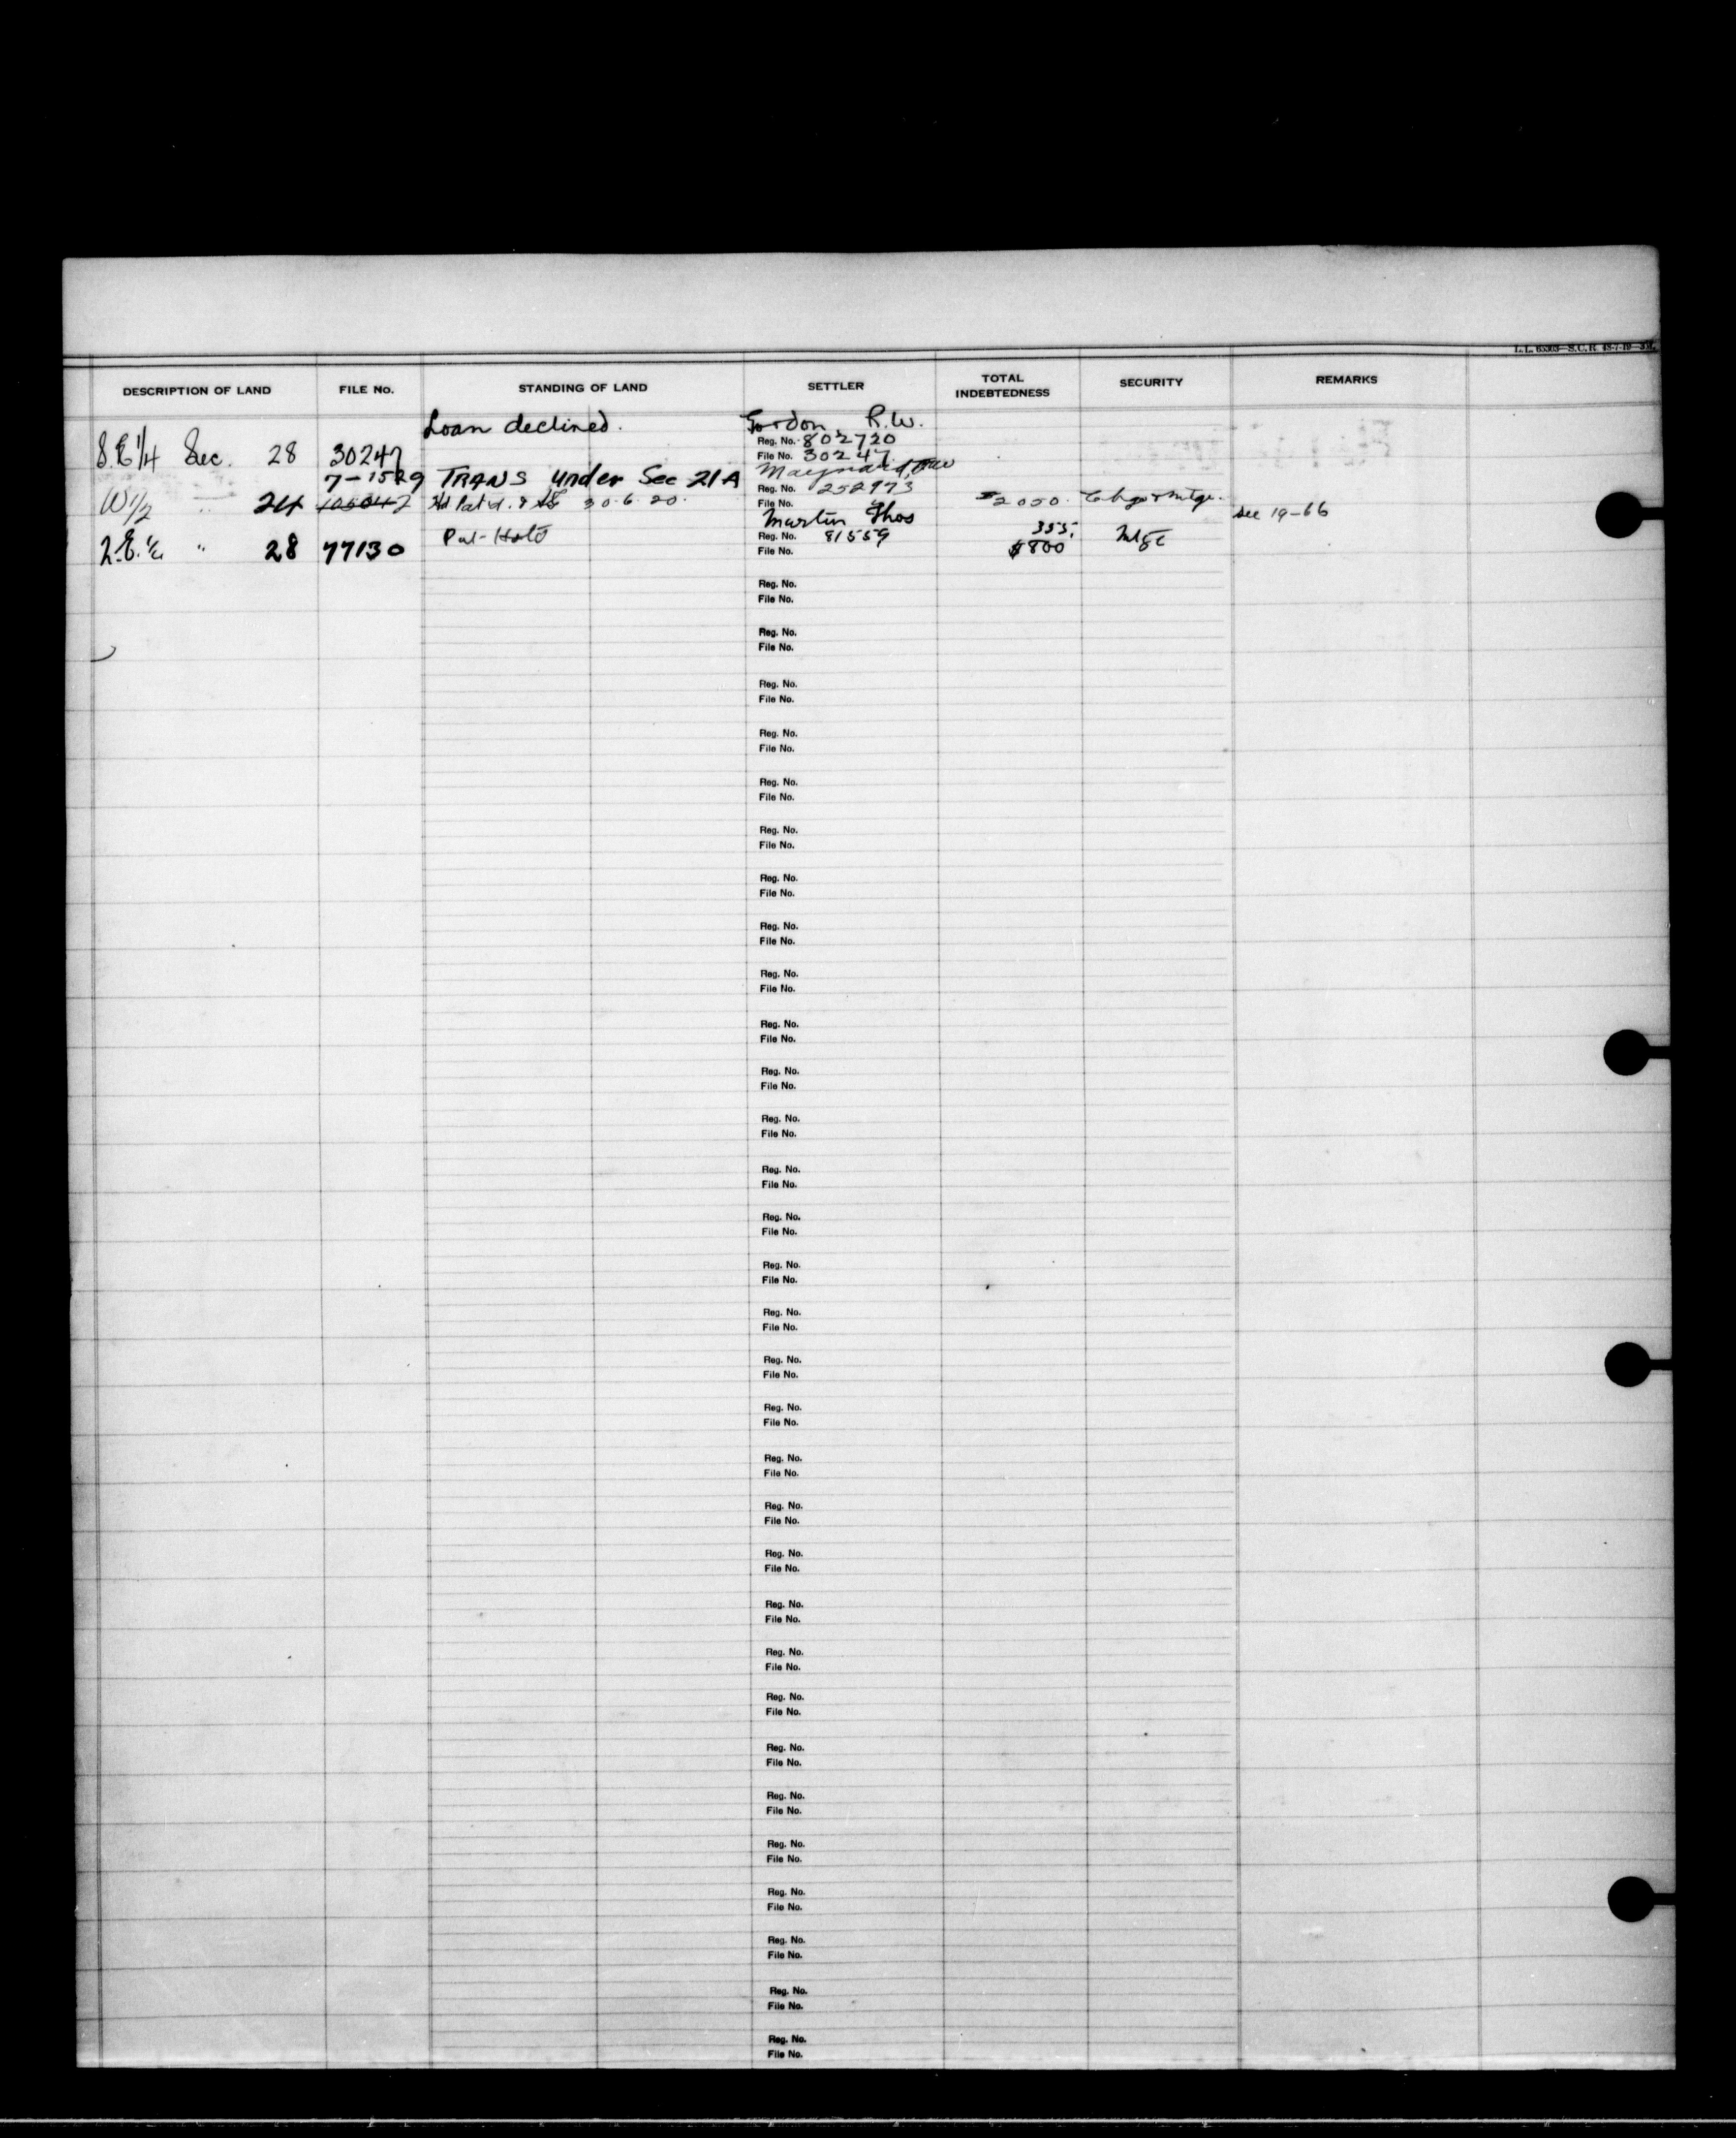 L.L. 65303—S.C.R. 48-7-19—
DESCRIPTION OF LAND FILE No. STANDING OF LAND SETTLER TOTAL INDEBTEDNESS SECURITY REMARKS
Loan declined. Gordon, R.W.
S.E 1/4 Sec. 28 30247 Reg. No. 802720
File No. 30247
7-1529 TRANS under Sec 21A Maynard,
W 1/2 " 24 Reg. No. 252973
30.6.20. File No. 2050. see 19-66
Martin Thos
" 28 77130 Reg. No. 81559 355.
File No. $800 Mtge
Reg. No.
File No.
Reg. No.
File No.
Reg. No.
File No.
Reg. No.
File No.
Reg. No.
File No.
Reg. No.
File No.
Reg. No.
File No.
Reg. No.
File No.
Reg. No.
File No.
Reg. No.
File No.
Reg. No.
File No.
Reg. No.
File No.
Reg. No.
File No.
Reg. No.
File No.
Reg. No.
File No.
Reg. No.
File No.
Reg. No.
File No.
Reg. No.
File No.
Reg. No.
File No.
Reg. No.
File No.
Reg. No.
File No.
Reg. No.
File No.
Reg. No.
File No.
Reg. No.
File No.
Reg. No.
File No.
Reg. No.
File No.
Reg. No.
File No.
Reg. No.
File No.
Reg. No.
File No.
Reg. No.
File No.
Reg. No.
File No.